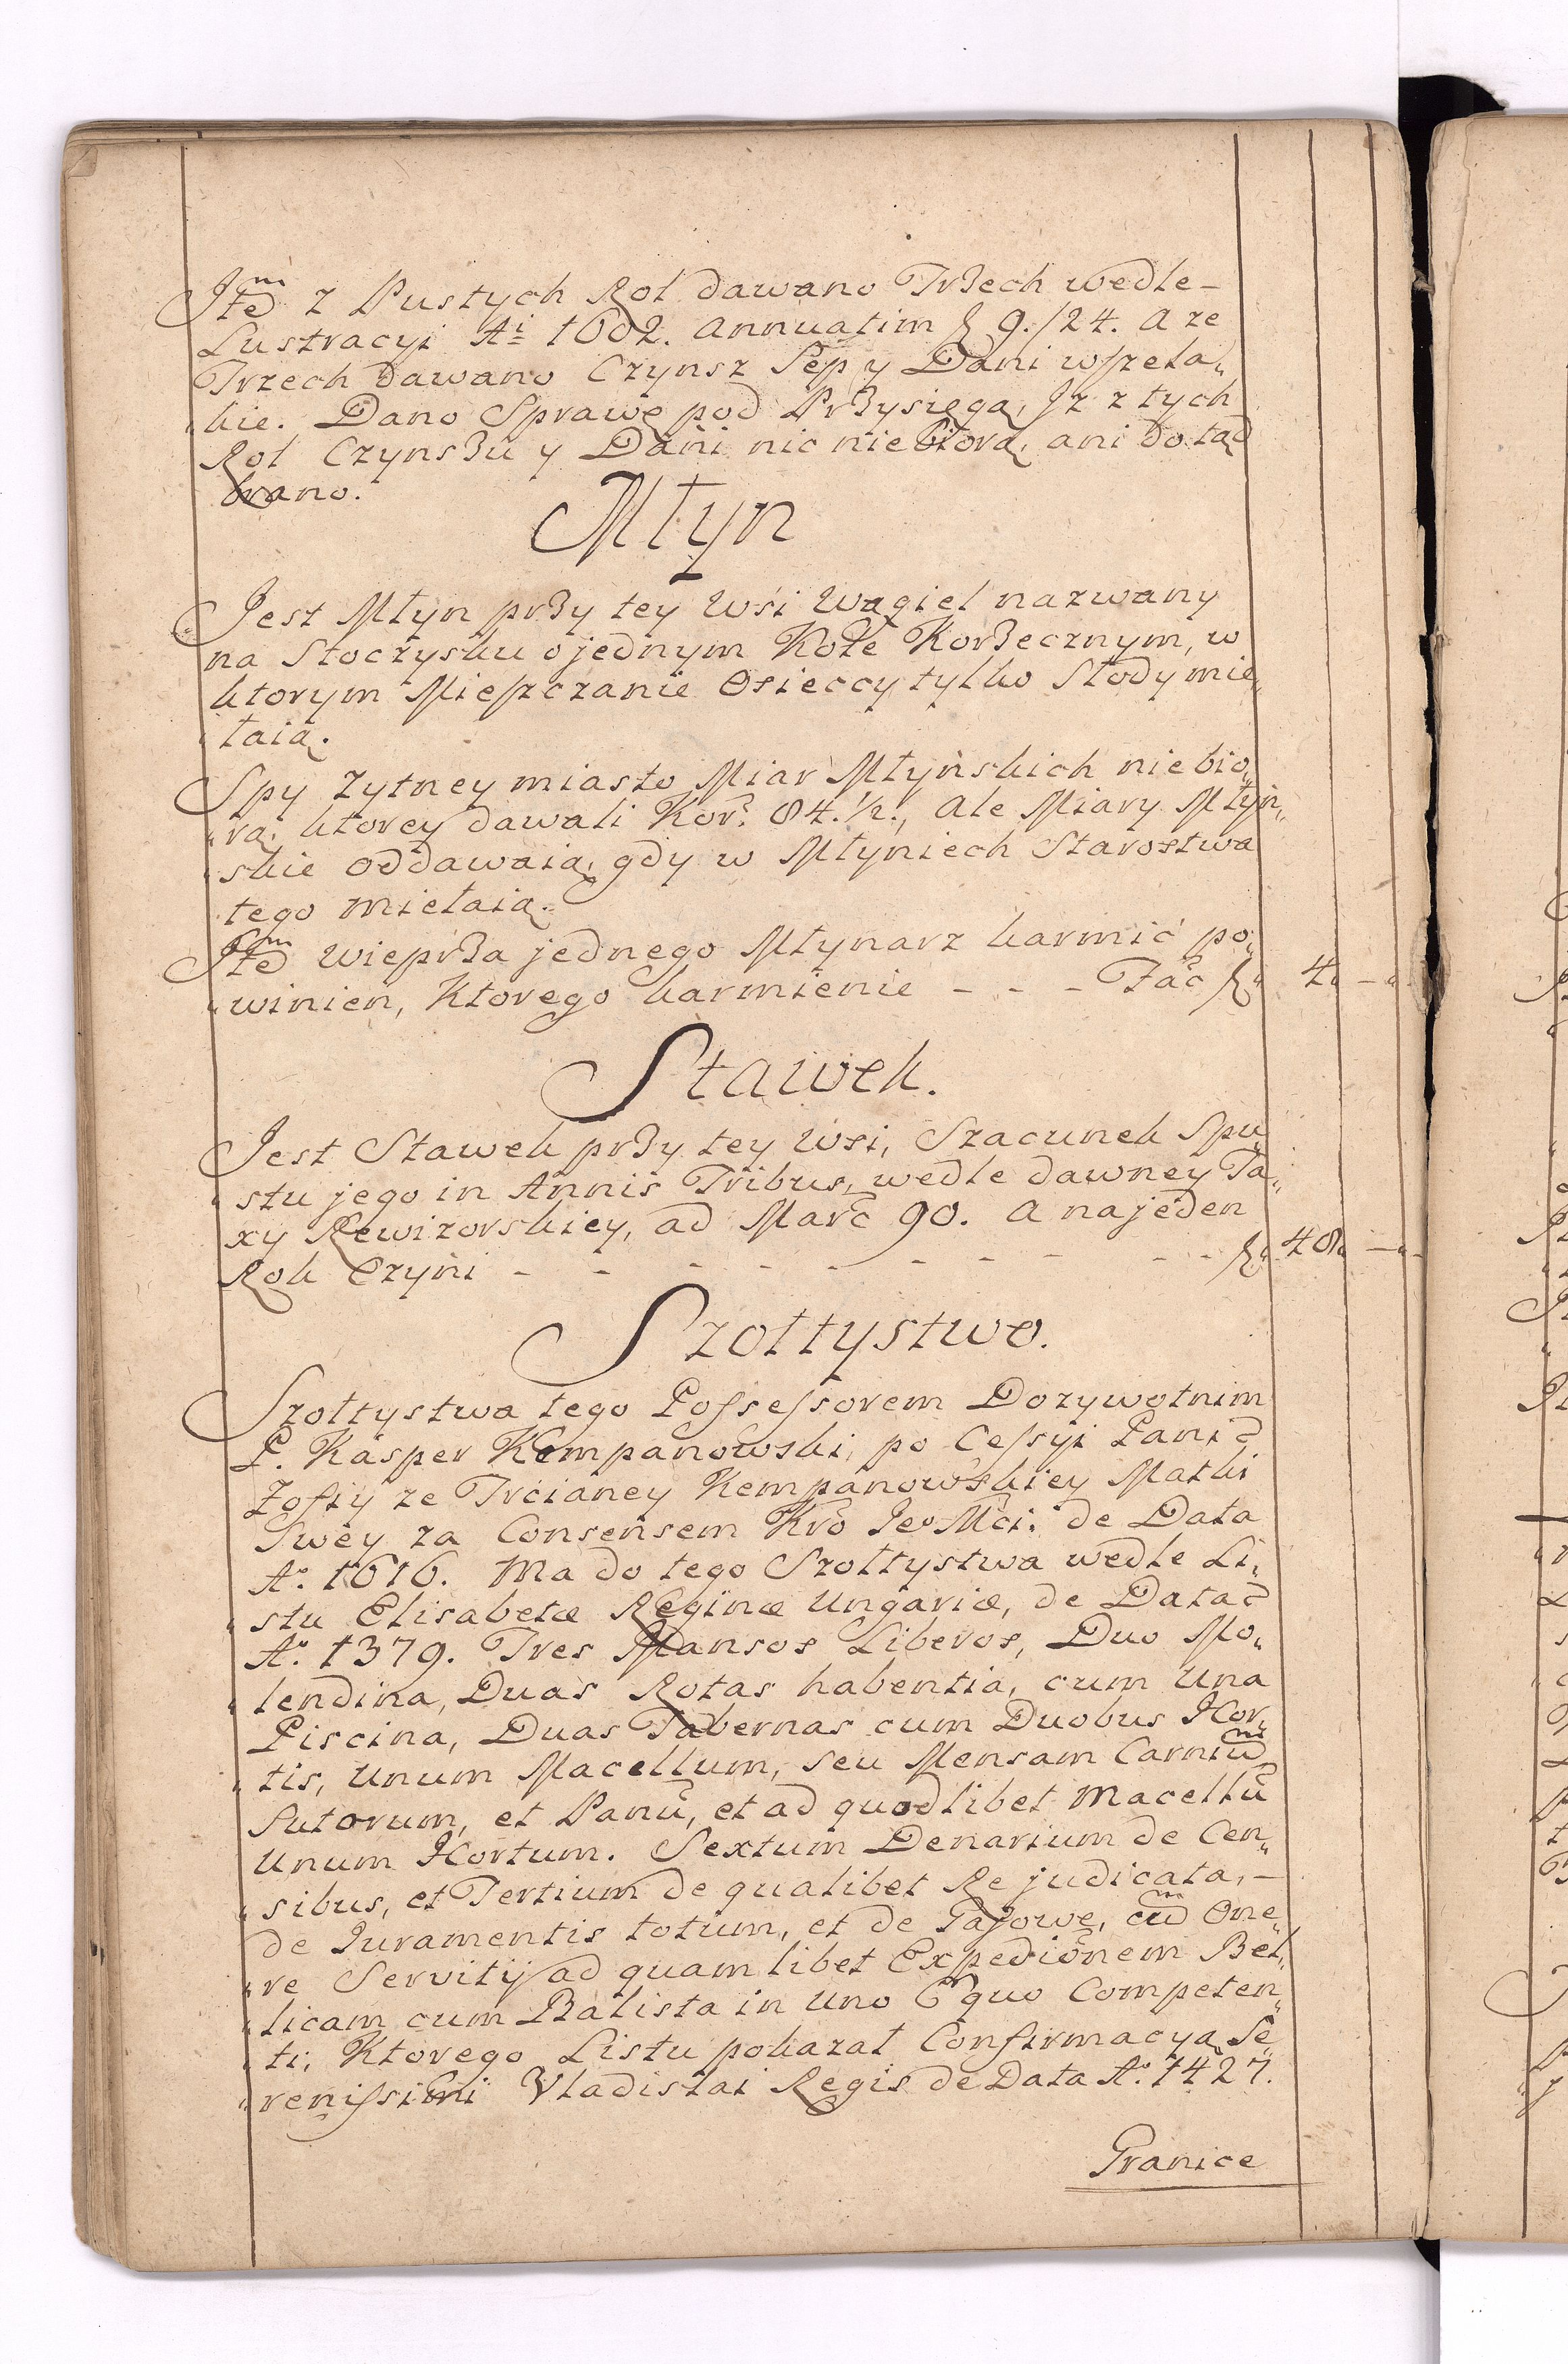 Jtẽm z Pustych Rol dawano Trzech wedle –
Lustracyi Ai 1602. annuatim f 9./24. a ze
Trzech dawano Czynsz Sep y Dani wszela„
„kie. Dano Sprawę pod Przysięgą, Jz z tych
Rol Czynszu y Dani nic nie biorą, ani dotąd
brano.
Młyn
Jest Młyn przy tey Wsi Wągieł nazwany
na Stoczysku o jednym Kole Korzecznym, w
ktorym Mieszczanie Osieccy tylko Słody mie„
„łaią.
Spy Zytney miasto Miar Młyńskich nie bio„
„rą, ktorey dawali Kor: 84.½., ale Miary Młyń„
„skie oddawaią, gdy w Młyniech Starostwa
tego mielaią.
Jtẽm wieprza jednego Młynarz karmić po„
„winien, Ktorego karmienie - - - Fac̃ f„ 4„ –„
Stawek.
Jest Stawek przy tey Wsi, Szacunek Spu„
„stu jego in Annis Tribus, wedle dawney Ta„
xy Rewizorskiey, ad Marc̃ 90. a na jeden
Rok Czyni - - - - - - - - f„ 48„ –„
Szołtystwo.
Szołtystwa tego Possessorem Dozywotnim
P. Kasper Kempanowski, po Cessyi Pani
Zofiy ze Trcianey Kempanowskiey Matki
Swey za Consensem Kro Jeo Mci: de Data
Ao. 1616. Ma do tego Szołtystwa wedle Li„
„stu Elisabetæ Reginæ Ungariæ, de Data
Ao. 1379. Tres Mansos Liberos, Duo Mo„
„lendina, Duas Rotas habentia, cum Una
Piscina, Duas Tabernas cum Duobus Hor„
„tis, Unum Macellum, seu Mensam Carniũm
Sutorum, et Panũ, et ad quodlibet Macellũ
Unum Hortum. Sextum Denarium de Cen„
„sibus, et Tertium de qualibet Re judicata, –
de Juramentis totum, et de cũm One„
„re Servitij ad quamlibet Expediõnem Bel„
„licam cum Balista in Uno Equo Competen„
„ti, Ktorego Listu pokazał Confirmacyą Se„
„renissimi Vladislai Regis de Data Ao. 1427.
Granice